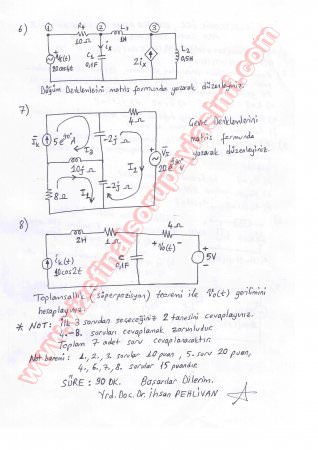 6)
1 2 3
R₁ 10Ω L₁ 1H
Vk(t) 20cos4t
iₓ
C₁ 0,1F
2iₓ
L₂ 0,5H
Düğüm Denklemlerini matris formunda yazarak düzenleyiniz.
7)
4Ω
Īk 5e^j0° A
-2j Ω
I₃
10Ω
8Ω
I₁
-2j Ω
I₂
Çevre Denklemlerini
matris formunda
yazarak düzenleyiniz.
8)
2H 1Ω 4Ω
ik(t) 10cos2t
C 0,1F
+ V₀(t) -
5V
Toplamsallık (süperpozisyon) teoremi ile V₀(t) gerilimini
hesaplayınız.
* NOT: İlk 3 sorudan seçeceğiniz 2 tanesini cevaplayınız.
4.-8. soruları cevaplamak zorunludur.
Toplam 7 adet soru cevaplanacaktır.
Not baremi: 1., 2., 3. sorular 10 puan, 5. soru 20 puan,
4., 6., 7., 8. sorular 15 puandır.
SÜRE: 90 DK. Başarılar Dilerim.
Yrd. Doç. Dr. İhsan PEHLİVAN